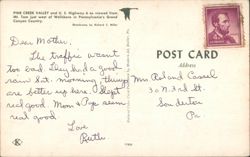 PINE CREEK VALLEY and U. S. Highway 6 as viewed from
Mt. Tom just west of Wellsboro in Pennsylvania's Grand
Canyon Country.
POST CARD
Address
Dear Mother,
The traffic wasn't
too bad. They had a good
rain Sat. morning, things
are better up here. Slept
real good. Mom & Pop seem
real good.
Love
Ruth
Mrs Roland Cassel
30 N. 3rd St.
Souderton
Pa.
K